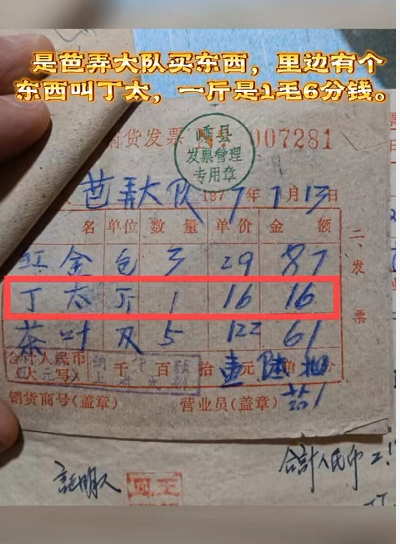 是芭弄大队买东西，里边有个
东西叫丁太，一斤是1毛6分钱。
销货发票 007281
嵊县
发票管理
专用章
芭弄大队 1977年1月13日
名 单位 数量 单价 金额
红金 包 3 29 87
丁太 斤 1 16 16
茶叶 双 5 122 61
合计人民币
(大写) 千 百 拾 壹 陆 角 分
销货商号(盖章) 营业员(盖章)
二、发票
证明人
合计人民币